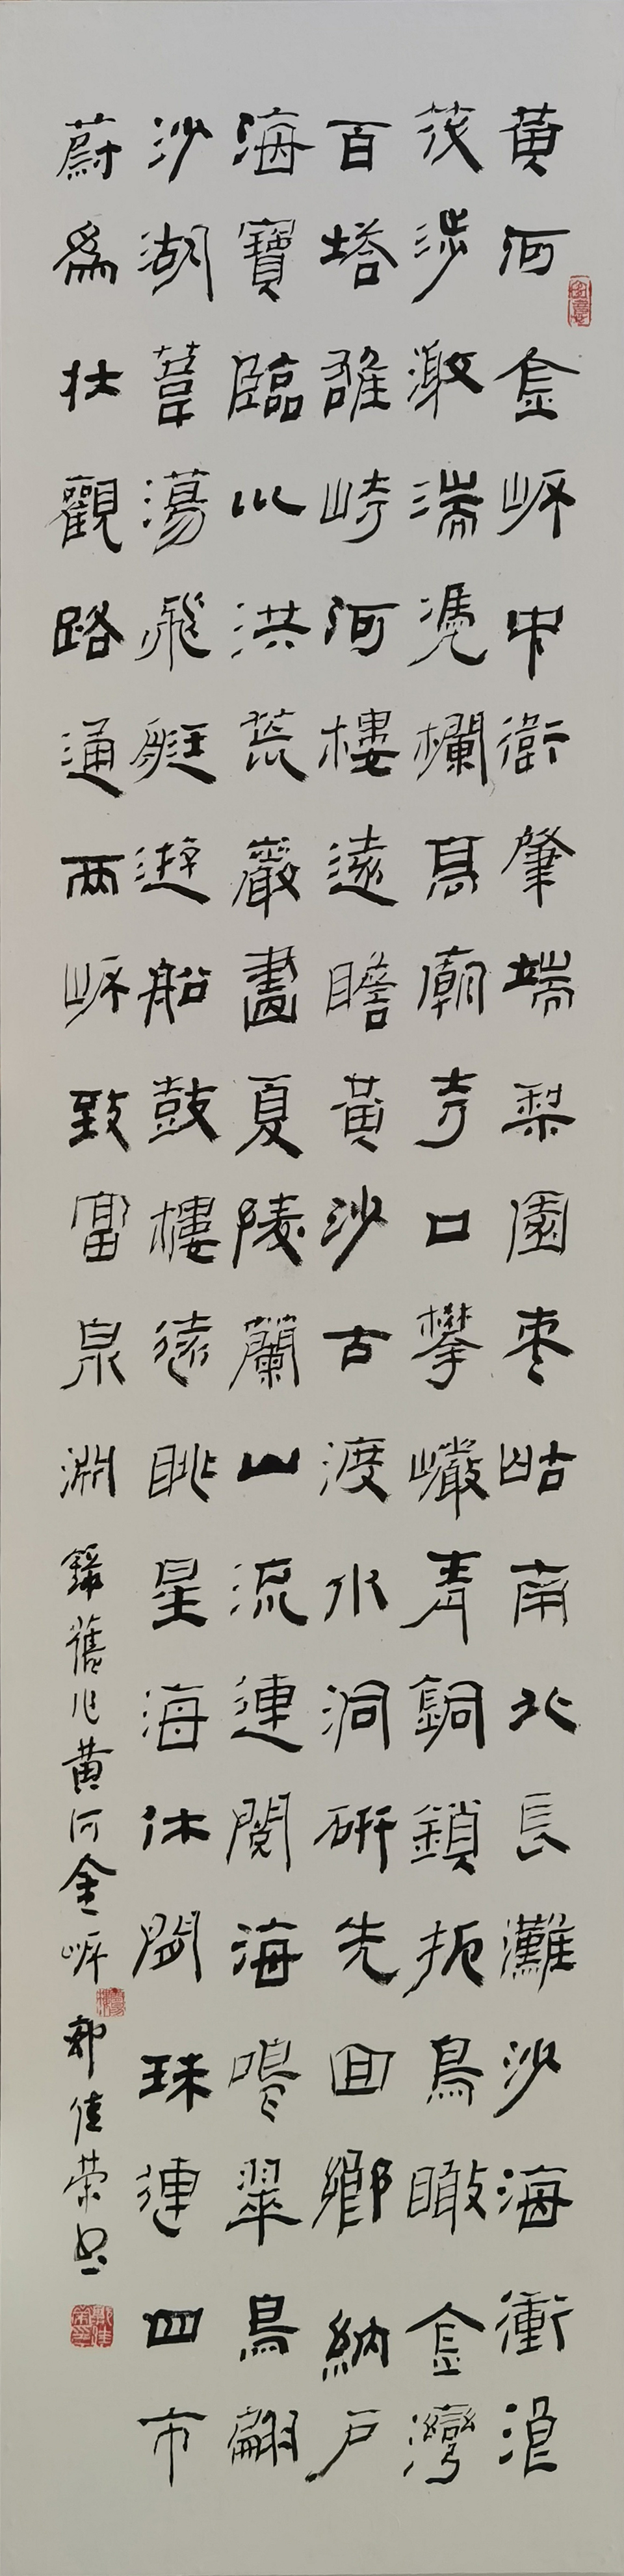 黃河金岸中衛肇端梨園棗岵南北長灘沙海衝浪
筏涉激湍憑欄高廟奇口攀巖青銅鎖扼鳥瞰金灣
百塔雄崎河樓遠瞻黃沙古渡水洞研先回鄉納戶
海寶臨川洪荒巖畫夏陵蘭山流連閱海鳴翠鳥翩
沙湖葦蕩飛艇遊船鼓樓遠眺星海休閑珠連四市
蔚為壯觀路通兩岸致富泉淵
錄舊作黃河金岸 郭佳榮書